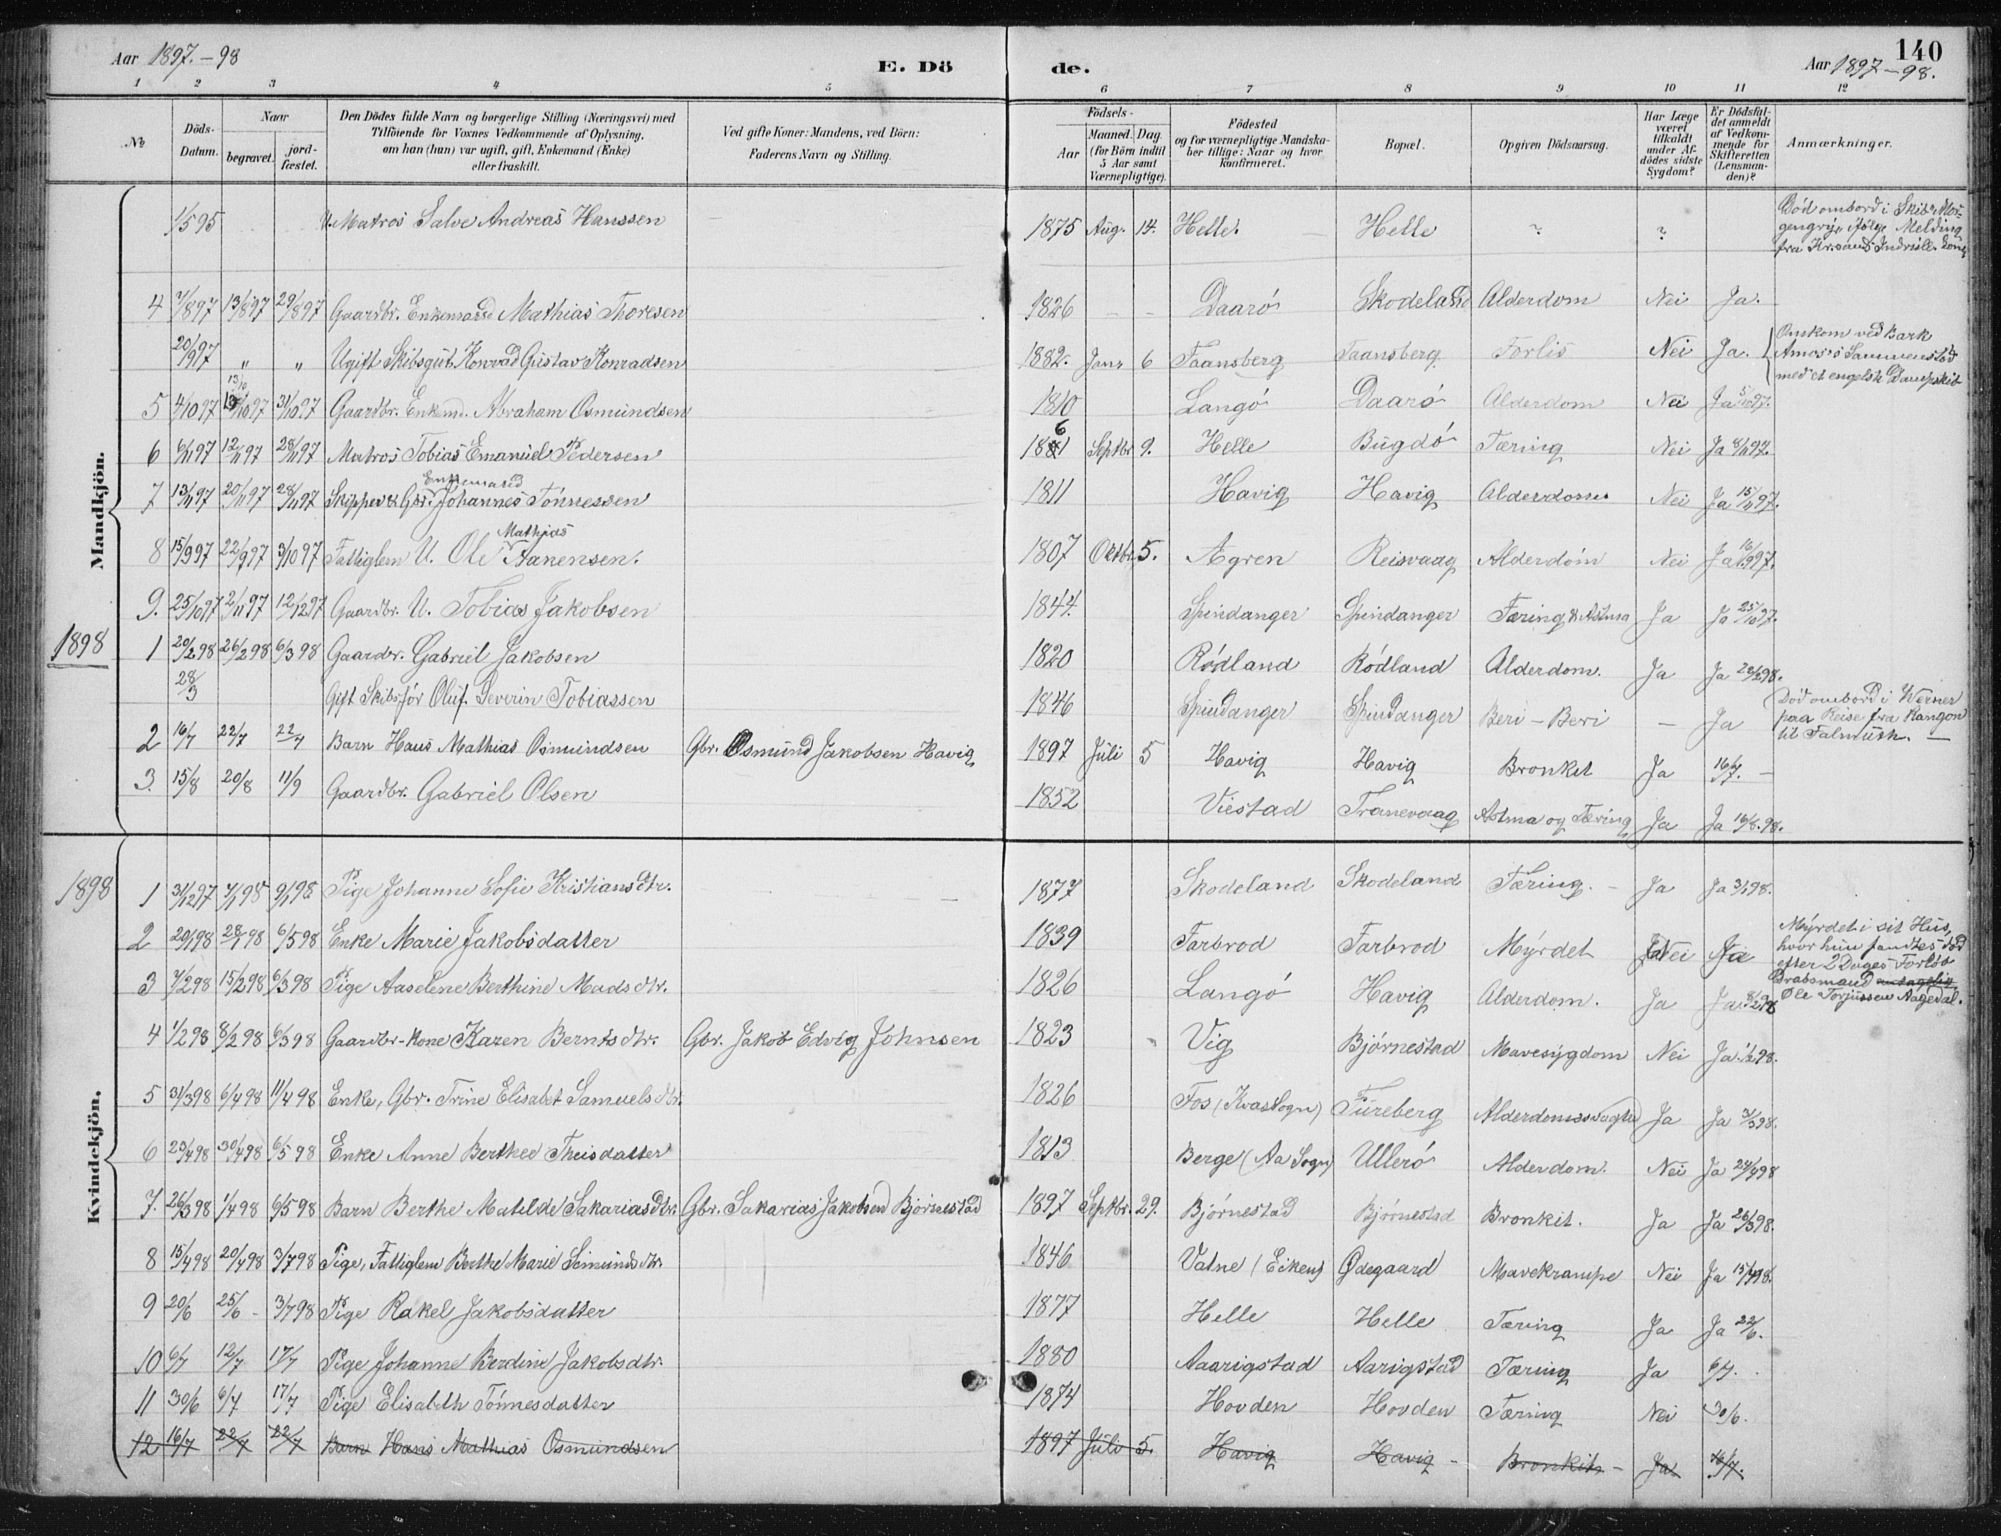 Aar 1897.-98
E. Dö
de.
Aar 1897-98.
140
1 2 3 4 5 6 7 8 9 10 11 12
No
Döds-Datum.
Naar
begravet.
jordfæstet.
Den Dödes fulde Navn og borgerlige Stilling (Næringsvei) med
Tilföiende for Voxnes Vedkommende af Oplysning,
om han (hun) var ugift, gift, Enkemand (Enke)
eller fraskilt.
Ved gifte Koner: Mandens, ved Börn:
Faderens Navn og Stilling.
Födsels-
Aar
Maaned. Dag.
(for Börn indtil
5 Aar samt
Værnepligtige).
Födested
og for værnepligtige Mandska-
ber tillige: Naar og hvor
konfirmeret.
Bopæl.
Opgiven Dödsaarsag.
Har Læge
været
tilkaldt
under Af-
dödes sidste
Sygdom?
Er Dödsfal-
det anmeldt
af Vedkom-
mende for
Skifteretten
(Lensman-
den)?
Anmærkninger.
Mandkjön.
1/5 95 U. Matros Salve Andreas Hanssen 1875 Aug. 14. Helle. Helle ? ? Död ombord i Skib Mor-
gengry, ifölge Melding
fra Kr.sand
4 7/8 97 13/8 97 29/8 97 Gaardbr. Enkemand Mathias Thoresen 1826 - - Daarö Skodeland Alderdom Nei Ja.
20/9 97 " " Ugift Skibsgut Konrad Gustav Konradsen 1882. Janr 6 Faansberg Faansberg Forlis Nei Ja. Omkom ved Bark
Amor's Sammenstöd
med et engelsk Dampskib
5 4/10 97 13/10 10/10 97 31/10 97 Gaardbr. Enkemd. Abraham Osmundsen 1810 Langö Daarö Alderdom Nei Ja 5/10 97.
6 6/11 97 12/11 97 28/11 97 Matros Tobias Emanuel Pedersen 1861 Septbr 9. Helle Bugdö Tæring Nei Ja 8/11 97.
7 13/11 97 20/11 97 28/11 97 Skipper & Gbr. Enkemand Johannes Tönnessen 1811 Havig Havig Alderdom Nei Ja 15/11 97.
8 15/9 97 22/9 97 3/10 97 Fattiglem U. Ole Mathias Aanensen. 1807 Oktbr 5. Ægren Reisvaag Alderdom Nei Ja 16/9 97.
9. 25/10 97 2/11 97 12/12 97 Gaardbr. U. Tobias Jakobsen 1844. Spindanger Spindanger Tæring & Astma Ja Ja 25/10 97.
1898
1 20/2 98 26/2 98 6/3 98 Gaardbr. Gabriel Jakobsen 1820 Rödland Rödland Alderdom. Ja Ja 22/2 98.
28/3 Gift Skibsför Oluf Severin Tobiassen 1846 Spindanger Spindanger Beri-Beri - Ja Död ombord i Werner
paa Reise fra Rangon
til Falmush.
2 16/7 22/7 22/7 Barn Hans Mathias Osmundsen Gbr. Osmund Jakobsen Havig 1897 Juli 5 Havig Havig Bronkit Ja 16/7. -
3. 15/8 20/8 11/9 Gaardbr. Gabriel Olsen 1852 Viestad Tranevaag Astma og Tæring Ja Ja 16/8. 98.
Kvindekjön.
1898
1 31/12 97 7/1 98 9/1 98 Pige Johanne Sofie Kristiansdtr. 1877 Skodeland Skodeland Tæring. - Ja Ja 3/1 98.
2 20/1 98 28/1 98 6/5 98 Enke Marie Jakobsdatter 1839 Farbrod Farbrod Myrdet Nei Ja Myrdet i sit Hus,
hvor hun fandtes död
efter 2 Dages Forlöb
Drabsmand antagelig
Ole Torjussen Aagedal.
3 7/2 98 15/2 98 6/3 98 Pige Aaselene Berthine Madsdtr. 1826 Langö Havig Alderdom. Ja Ja 8/2 98
4 1/2 98 8/2 98 6/3 98 Gaardbr-kone Karen Berntsdtr. Gbr. Jakob Edvig Johnsen 1823 Vig Bjørnestad Mavesygdom Nei Ja 1/2 98.
5 31/3 98 6/4 98 11/4 98 Enke, Gbr. Trine Elisabet Samuelsdtr. 1826 Fos (Kvas Sogn) Fureberg Alderdomssvaghed Ja Ja 31/3 98.
6 23/4 98 30/4 98 6/5 98 Enke Anne Berthee Theisdatter 1813 Berge (Aa Sogn) Ullerö Alderdom. Nei Ja 24/4 98
7. 26/3 98 1/4 98 6/5 98 Barn Berthe Matilde Sakariasdtr. Gbr. Sakarias Jakobsen Bjørnestad 1897 Septbr. 29. Bjørnestad Bjørnestad Bronkit. Ja Ja 26/3 98.
8 15/4 98 20/4 98 3/7 98 Pige, Fattiglem Berthe Marie Seimundsdtr. 1846 Vatne (Eiken) Ødegaard Mavekrampe Nei Ja 15/4 98.
9 20/6 25/6 - 3/7 98 Pige Rakel Jakobsdatter 1877 Helle Helle Tæring Ja Ja 22/6.
10 6/7 12/7 17/7 Pige Johanne Berdine Jakobsdtr. 1880 Aaarigstad Aarigstad Tæring Ja 6/7.
11 30/6 6/7 17/7 Pige Elisabeth Tönnesdatter 1874 Hovden Hovden Tæring Nei 30/6.
12 16/7 22/7 22/7 Barn Hans Mathias Osmundsen 1897 Juli 5. Havig Havig - Bronkit - Ja 16/7.